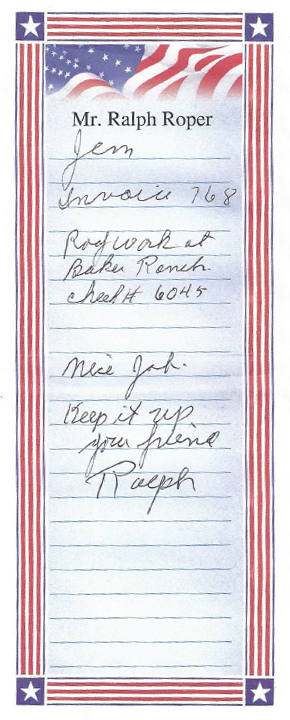 Mr. Ralph Roper
Jem
Invoice 768
Rod work at
Baker Ranch
check# 6045
Nice Job.
Keep it up
your friend
Ralph